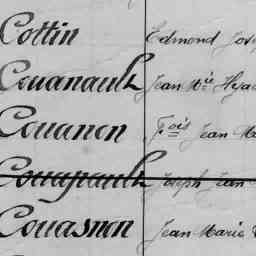 Cottin Edmond Jos
Couanault Jean M ie Hya
Couanon F ois Jean Ma
Couapault Joseph Jean
Couasnon Jean Marie